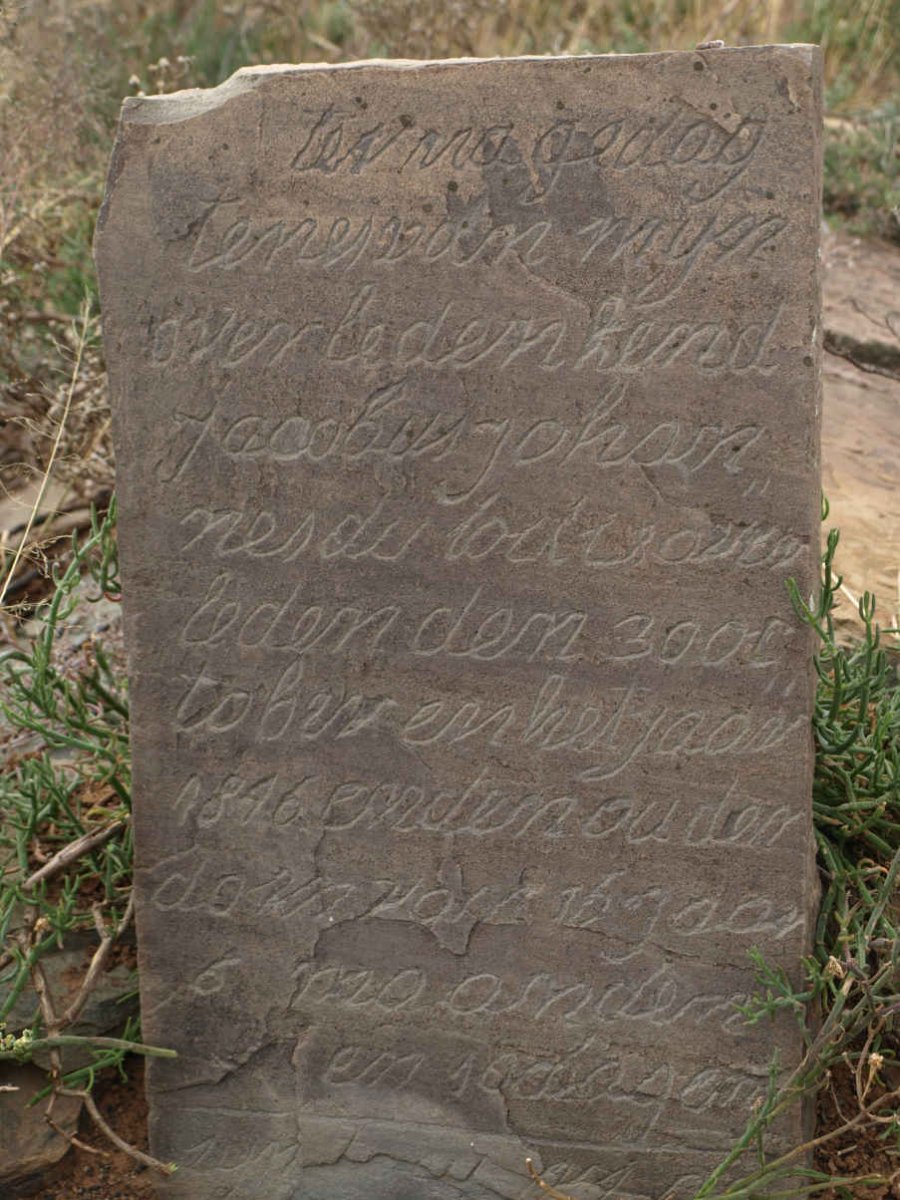 ter na gedag
tenes van mijn
overleden kend
Jacobus Johan"
nes du toit is over
leden den 30 oc"
tober en het jaar
1846 en den ouder
dom van 16 jaar
6 maanden
en